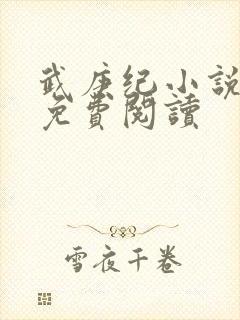 武庚纪小說
免費閱讀
雪夜千卷